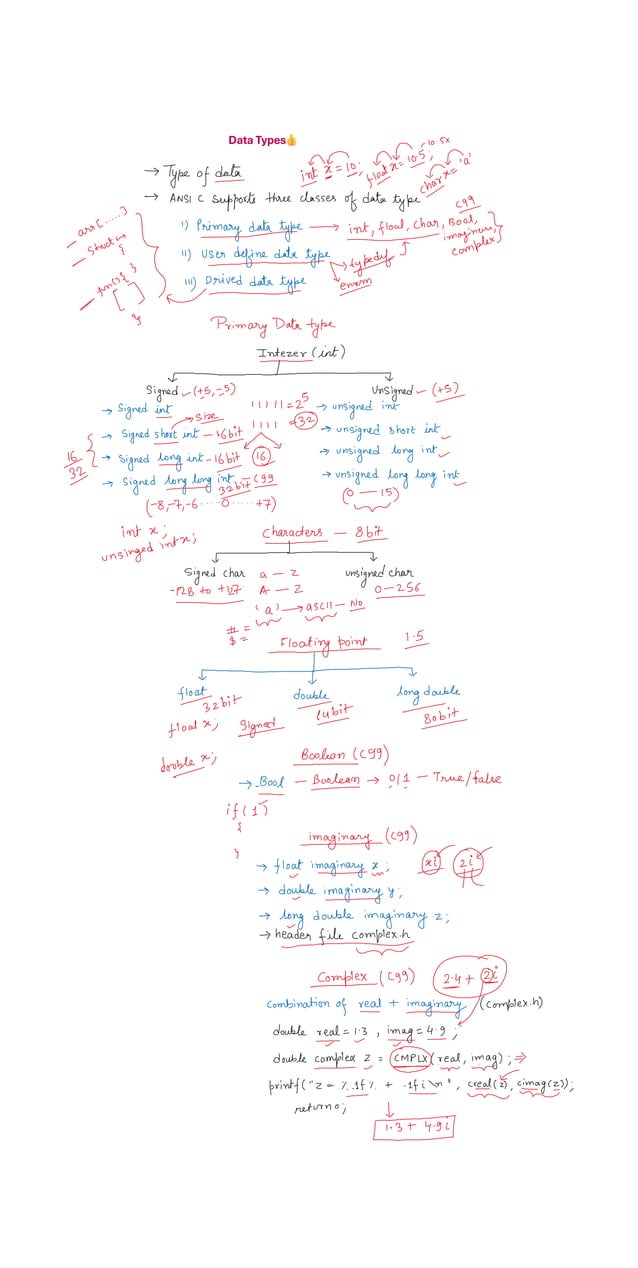 Data Types👍
→ Type of data
int x = 10; float x = 10.5; char x = 'a'
10.5x
→ ANSI C supports three classes of data type
C99
i) Primary data type → int, float, char, Bool, imaginery, complex
ii) User define data type → typedef
enum
iii) Drived data type
arr[.....]
struct
{
}
fun(){
[ ]
}
Primary Data type
Intezer (int)
Signed - (+5, -5)
Unsigned - (+5)
→ Signed int
1 1 1 1 1 = 2^5
→ unsigned int
→ size
→ Signed short int - 16bit
1 1 1 1 = 32
→ unsigned short int
16
32
→ Signed long int - 16 bit
16
→ unsigned long int
→ Signed long long int C99
32bit
→ unsigned long long int
(-8,-7,-6 ..... 0 ..... +7)
(0 — 15)
int x;
unsinged int x;
Characters - 8bit
Signed char
a - z
unsigned char
-128 to +127
A - Z
0 - 256
'a' → ASCII - No
# =
$ =
Floating point
1.5
float
double
long double
32bit
64bit
80bit
float x;
Signed
double x;
Boolean (C99)
→ _Bool - Boolean → 0/1 - True/false
if(1)
{
}
imaginary (C99)
→ float imaginary x;
xi
2i
→ double imaginary y;
→ long double imaginary z;
→ header file complex.h
Complex (C99)
2.4 + 2i
combination of real + imaginary (complex.h)
double real = 1.3, imag = 4.9;
double complex z = CMPLX(real, imag); ⇒
printf("z = %.1f% + .1fi\n", creal(z), cimag(z));
return 0;
1.3 + 4.9i